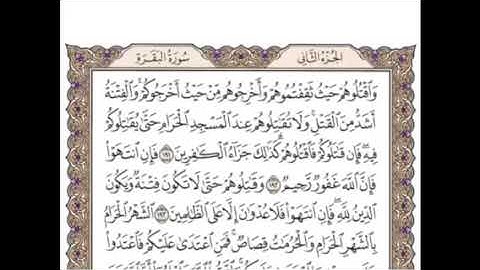 الجزء الثاني
سورة البقرة
وَٱقۡتُلُوهُمۡ حَيۡثُ ثَقِفۡتُمُوهُمۡ وَأَخۡرِجُوهُم مِّنۡ حَيۡثُ أَخۡرَجُوكُمۡۚ وَٱلۡفِتۡنَةُ
أَشَدُّ مِنَ ٱلۡقَتۡلِۚ وَلَا تُقَٰتِلُوهُمۡ عِندَ ٱلۡمَسۡجِدِ ٱلۡحَرَامِ حَتَّىٰ يُقَٰتِلُوكُمۡ
فِيهِۖ فَإِن قَٰتَلُوكُمۡ فَٱقۡتُلُوهُمۡۗ كَذَٰلِكَ جَزَآءُ ٱلۡكَٰفِرِينَ ١٩١ فَإِنِ ٱنتَهَوۡاْ
فَإِنَّ ٱللَّهَ غَفُورٞ رَّحِيمٞ ١٩٢ وَقَٰتِلُوهُمۡ حَتَّىٰ لَا تَكُونَ فِتۡنَةٞ وَيَكُونَ
ٱلدِّينُ لِلَّهِۖ فَإِنِ ٱنتَهَوۡاْ فَلَا عُدۡوَٰنَ إِلَّا عَلَى ٱلظَّٰلِمِينَ ١٩٣ ٱلشَّهۡرُ ٱلۡحَرَامُ
بِٱلشَّهۡرِ ٱلۡحَرَامِ وَٱلۡحُرُمَٰتُ قِصَاصٞۚ فَمَنِ ٱعۡتَدَىٰ عَلَيۡكُمۡ فَٱعۡتَدُواْ